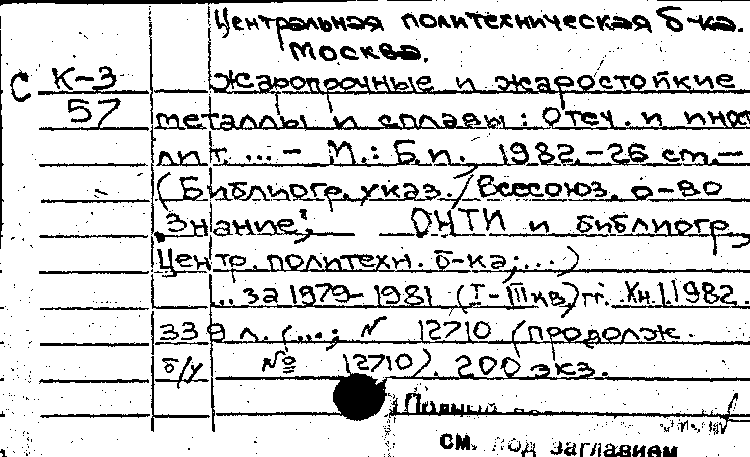 Центральная политехническая б-ка.
Москва.
С К-3 жаропрочные и жаростойкие
57 металлы и сплавы: Отеч. и иност
лит. ... - М.: Б.и., 1982.-26 см.-
(Библиогр. указ. / Всесоюз. о-во
"Знание", ОНТИ и библиогр.
Центр. политехн. б-ка; ...)
... за 1979-1981 (I-III кв.) гг. Хн.1.1982.
339 л. (...; № 12710 (продолж.
б/у № 12710). 200 экз.
Полный
см. под заглавием